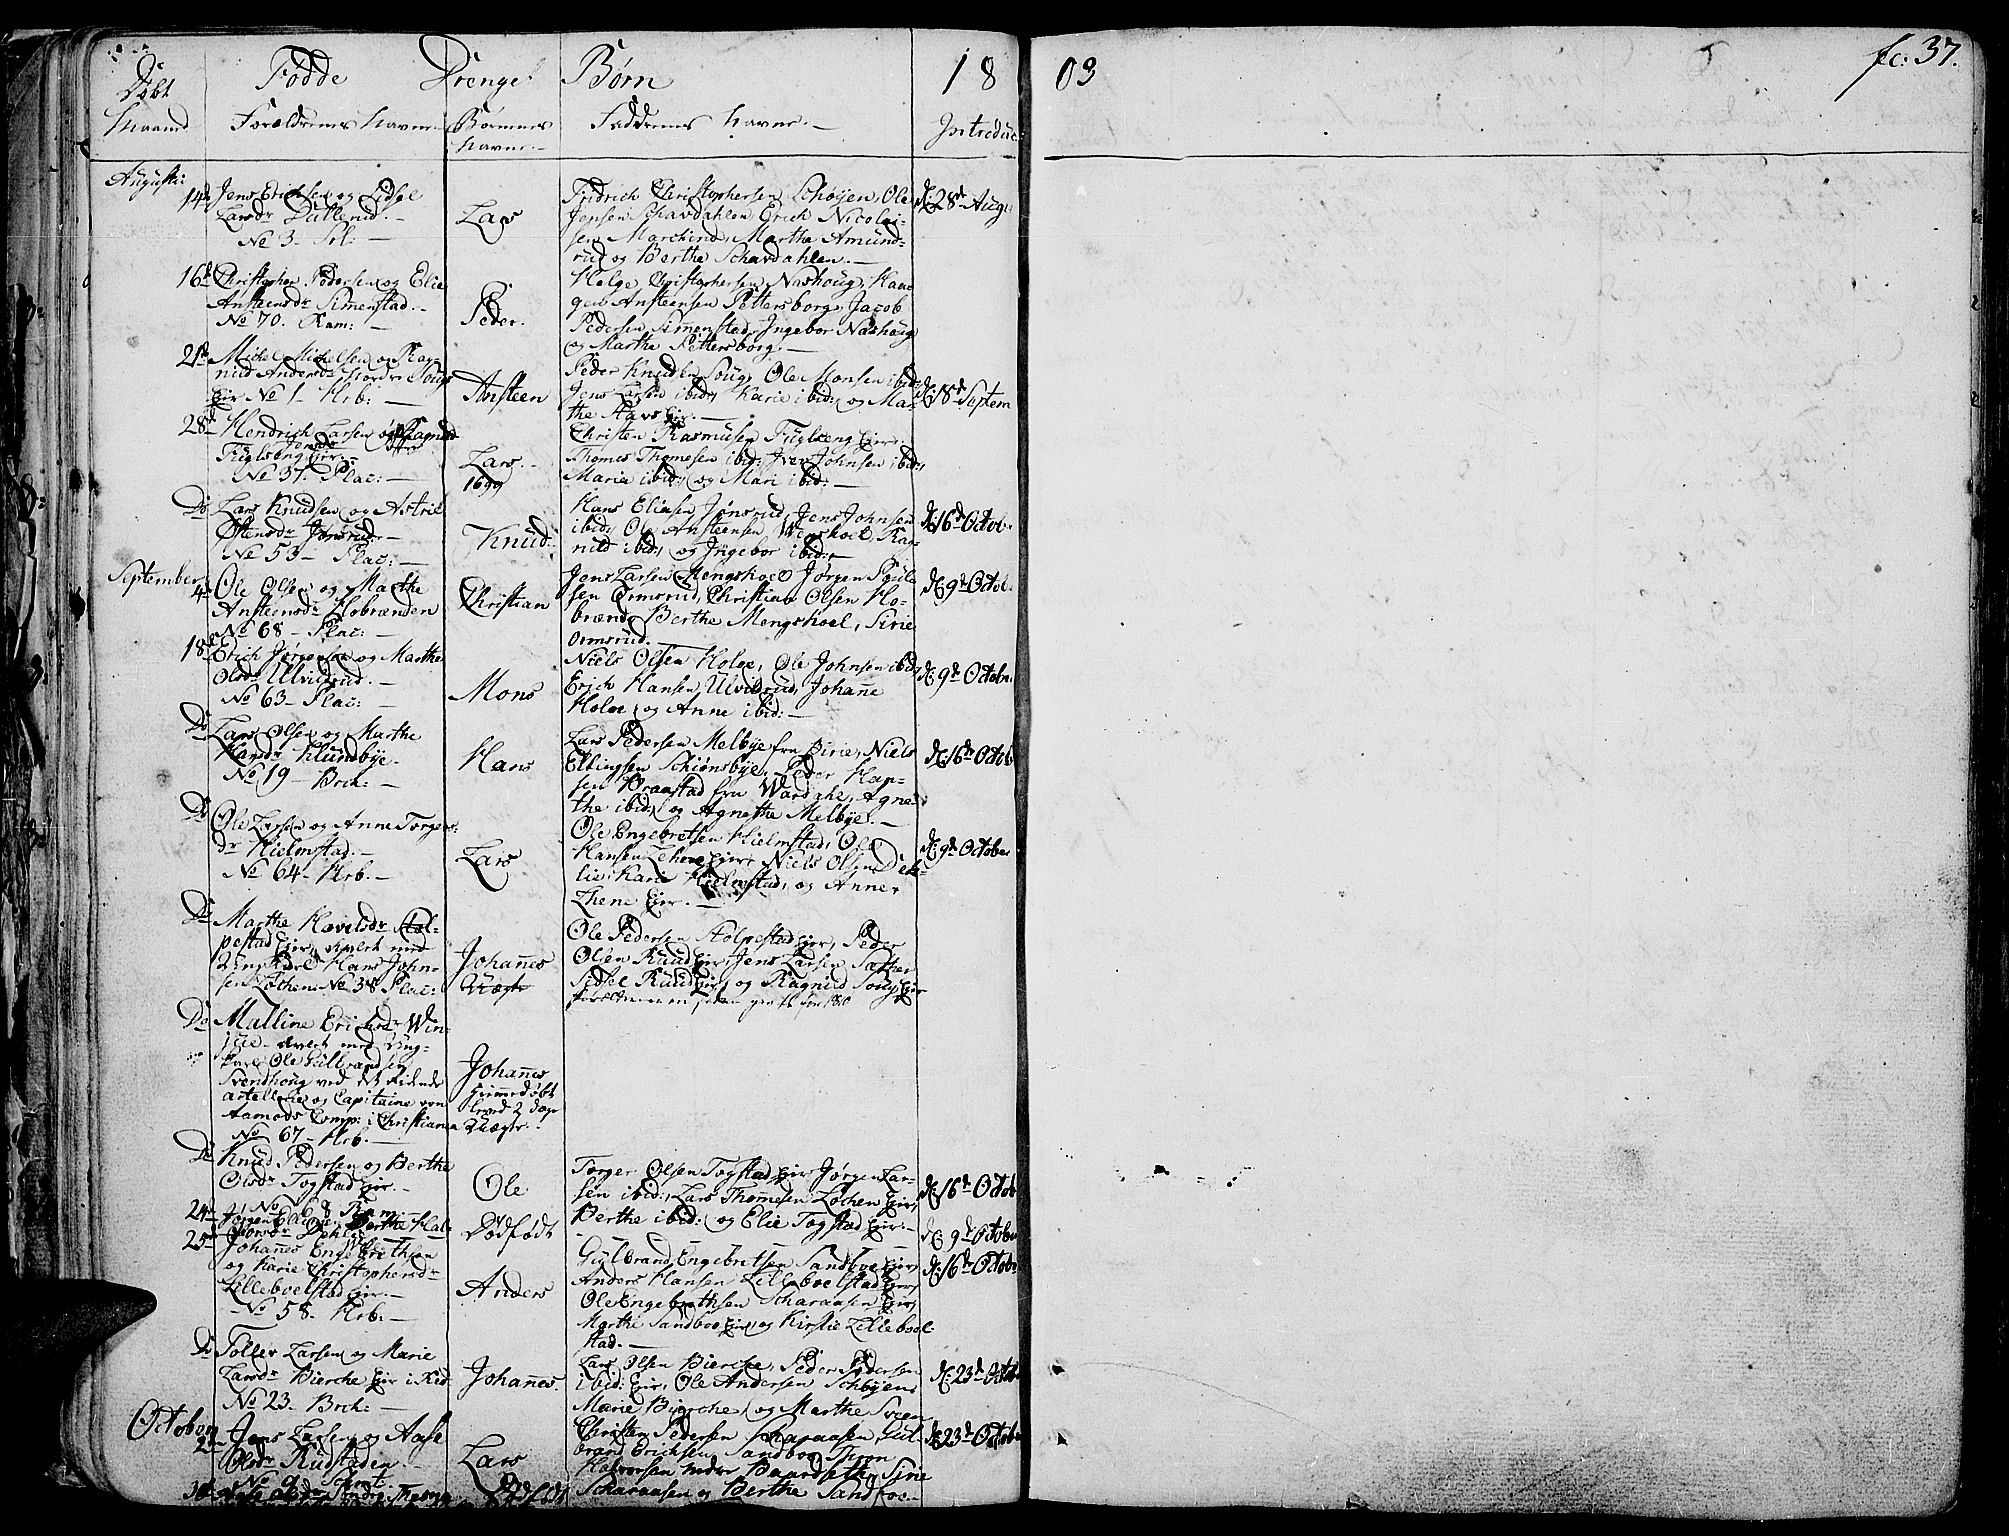 Döbt Fødde Drenge Børn 18 03 fc: 37.
Maaned Forældrenes Navne.- Børnenes Navne.- Faddernes Navne.- Introduc:
Augusti
14de Jens Erichsen og Sidsel
Larsdr Dullerud.-
No 3- Prl:-
Lars
Fridrich Christophersen Schøyen, Ole
Jensen Schavdahlen, Erich Nicolai-
sen Marchind, Marthe Amund-
rud og Berthe Schavdahlen.-
d: 28de Augu
16de Christopher Pedersen og Elie
Ansteensdr Simenstad.-
No 70. Ram:-
Peder.
Helge Christophersen Nashoug, Haa-
gen Ansteensen Pettersborg, Jacob
Pedersen Simenstad, Ingebor Nashoug
og Marthe Pettersborg.-
21de Michel Michelsen og Rag-
nild Andersdr Soug
Eie No 1- Hrb:-
Ansteen
Peder Knudsen Soug, Ole Monsen ibid,
Jens Larsen ibid, Karie ibid, og Mar-
the Eie.-
d: 18de Septem
28de Hendrich Larsen og Ragnild
Fuglseng Eie.-
No 37. Plac:-
Lars.-
1699
Christen Rasmusen Fuglseng Eie.
Thomes Thomesen ibid: Iver Johnsen ibid,
Marie ibid, og Mari ibid:-
Do Lars Knudsen og Astrid
Østensdr Jønsrud.-
No 53- Plac:-
Knud
Hans Eliesen Jønsrud, Jens Johnsen
ibid, Ole Ansteensen Wegshoel, Rag-
nild ibid, og Ingebor ibid:-
d: 16de Octob
September
4de Ole Olsen og Marthe
Ansteensdr Hobrænden
No 68- Plac:-
Christian
Jens Larsen Mengshoel, Jørgen Poule-
sen Ormsrud, Christian Olsen Ho-
brænd, Berthe Mengshoel, Sirie
Ormsrud.-
d: 9de Octob
18de Erich Jørgensen og Marthe
Olsdr Ulvilsrud.-
No 63- Plac:-
Mons
Niels Olsen Holoe, Ole Johnsen ibid,
Erich Hansen Ulvilsrud, Johanne
Holoe, og Anne ibid:-
d: 9de Octobr
Do Lars Olsen og Marthe
Hansdr Klundbye.
No 19- Brch:-
Hans
Lars Pedersen Melbye fra Birie, Niels
Ellingsen Schiønsbye, Peder Han-
sen Braastad fra Wardahl, Agne-
the ibid, og Agnethe Melbye.-
d: 16de Octob
Do Ole Larsen og Anne Torgers-
dr Hielmstad.-
No 64- Hrb.-
Lars
Ole Engebretsen Hielmstad, Ole
Hansen Eie, Niels Olsen Deh-
lie, Karie Hielmstad, og Anne
Eie.-
d: 9de October
Do Marthe Havelsdr Stol-
pestad Eie, avlet med
Ungkarl Hans John-
sen Løthen. No 38 Plac:
Johannes
Uægte
Ole Pedersen Stolpestad Eie, Peder
Olsen Ruud Eie, Jens Larsen Sæther
Sidsel Ruud Eie, og Ragnild Soug Eie
Do Malline Erichsdr Win-
jue- avlet med Ung-
karl Ole Gulbrandsen
Svendhoug ved det Ridende
artellerie og Capitaine von
Aamods Comp: i Christiania
No 67- Hrb.-
Johannes
hiemmedøbt
levede 2 dage
Uægte.-
Do Knud Pedersen og Berthe
Olsdr Togstad Eie.-
No 68 Ram
Ole
Torger Olsen Togstad Eie, Jørgen Lar-
sen ibid:, Lars Thomesen Løchen Eie,
Berthe ibid: og Elie Togstad Eie.-
d: 16de Octob
24de Berthe Hal-
Dødfødt
d: 9de October
25de Johanes Engebrethsen
og Karie Christophersdr
Lilleboelstad Eie.-
No 58. Hrb.-
Anders
Gulbrand Engebretsen Sandboe Eie,
Anders Hansen Lilleboelstad Eie,
Ole Engebrethsen Scharaasen Eie,
Marthe Sandboe Eie, og Kirstie Lilleboel-
stad.-
d: 16de Octobr
Do Toller Larsen og Marie
Larsdr Bierche Eie i Red.
No 23. Brch:-
Johannes.
Lars Olsen Bierche, Peder Pedersen
ibid: Eie, Ole Andersen Schøyen
Marie Bierche, og Marthe Sveen
d: 23de Octob
October
2de Jens Larsen og Aase
Olsdr Rudstaden-
No 9
Lars
Christen Pedersen Scharaasen, Gul-
brand Erichsen Sandboe, Thron
Halvorsen nedre Baardseth, Sirie
Scharaasen og Berthe Sandboe.-
d: 23de Octob
Dødfødt